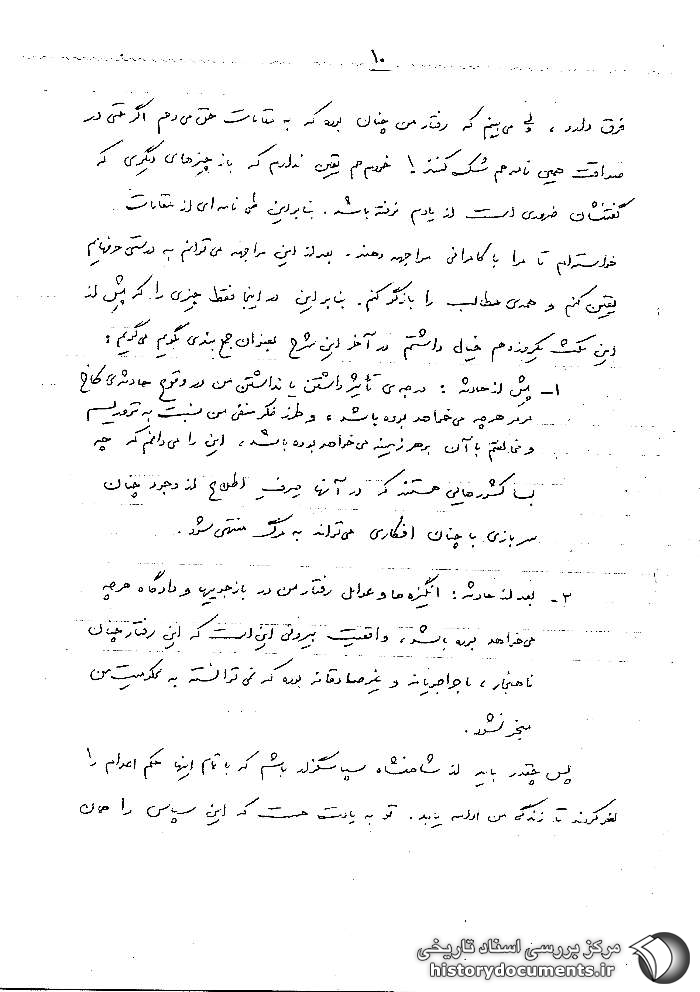 ۱۰
فرق دارد، ولی می‌بینم که رفتار من چنان بوده که به مقامات حق می‌دهم اگر حتی در
صداقت همین نامه هم شک کنند! خودم هم یقین ندارم که باز چیزهای دیگری که
گفتنشان ضروری است از یادم نرفته باشد. بنابراین طی نامه‌ای از مقامات
خواسته‌ام تا مرا با کامرانی مواجهه دهند. بعد از این مواجهه می‌توانم به درستی حرفهایم
یقین کنم و همه‌ی مطالب را بازگو کنم. بنابراین در اینجا فقط چیزی را که پیش از
این مکث یکروزه هم خیال داشتم در آخر این شرح بعنوان جمع بندی بگویم می‌گویم:
۱- پیش از حادثه: درجه‌ی تأثیر داشتن یا نداشتن من در وقوع حادثه‌ی کاخ
مرمر هرچه می‌خواهد بوده باشد، و طرز فکر منفی من نسبت به تروریسم
و مخالفتم با آن بر هر زمینه می‌خواهد بوده باشد، این را می‌دانم که چه
بسا کشورهایی هستند که در آنها صرفِ اطلاع از وجود چنان
سربازی با چنان افکاری می‌تواند به مرگ منتهی شود.
۲- بعد از حادثه: انگیزه‌ها و عوامل رفتار من در بازجوییها و دادگاه هرچه
می‌خواهد بوده باشد، واقعیت بیرونی این است که این رفتار چنان
ناهنجار، ماجراجویانه و غیرصادقانه بوده که نمی‌توانسته به محکومیت من
منجر نشود.
پس چقدر باید از شاهنشاه سپاسگزار باشم که با تمام اینها حکم اعدام را
لغو کردند تا زندگی من ادامه یابد. تو به یادت هست که این سپاس را همان
مرکز بررسی اسناد تاریخی
historydocuments.ir